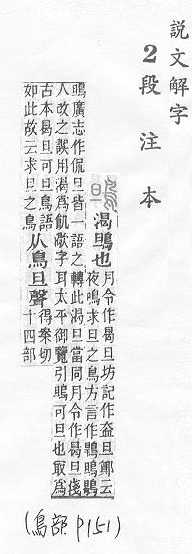 説文解字
2段注本
鴠
渴鴠也
月令作曷旦坊記作盍旦鄭云
夜鳴求旦之鳥方言作鶡鴠鶡
鴠廣志作侃旦皆一語之轉此渴旦當同月令作曷旦淺
人改之誤用渴爲飢字耳太平御覽引鴠可旦也取爲
古本曷旦可旦鳥語
如此故云求旦之鳥
从鳥旦聲
得案切
十四部
(鳥部 P151)